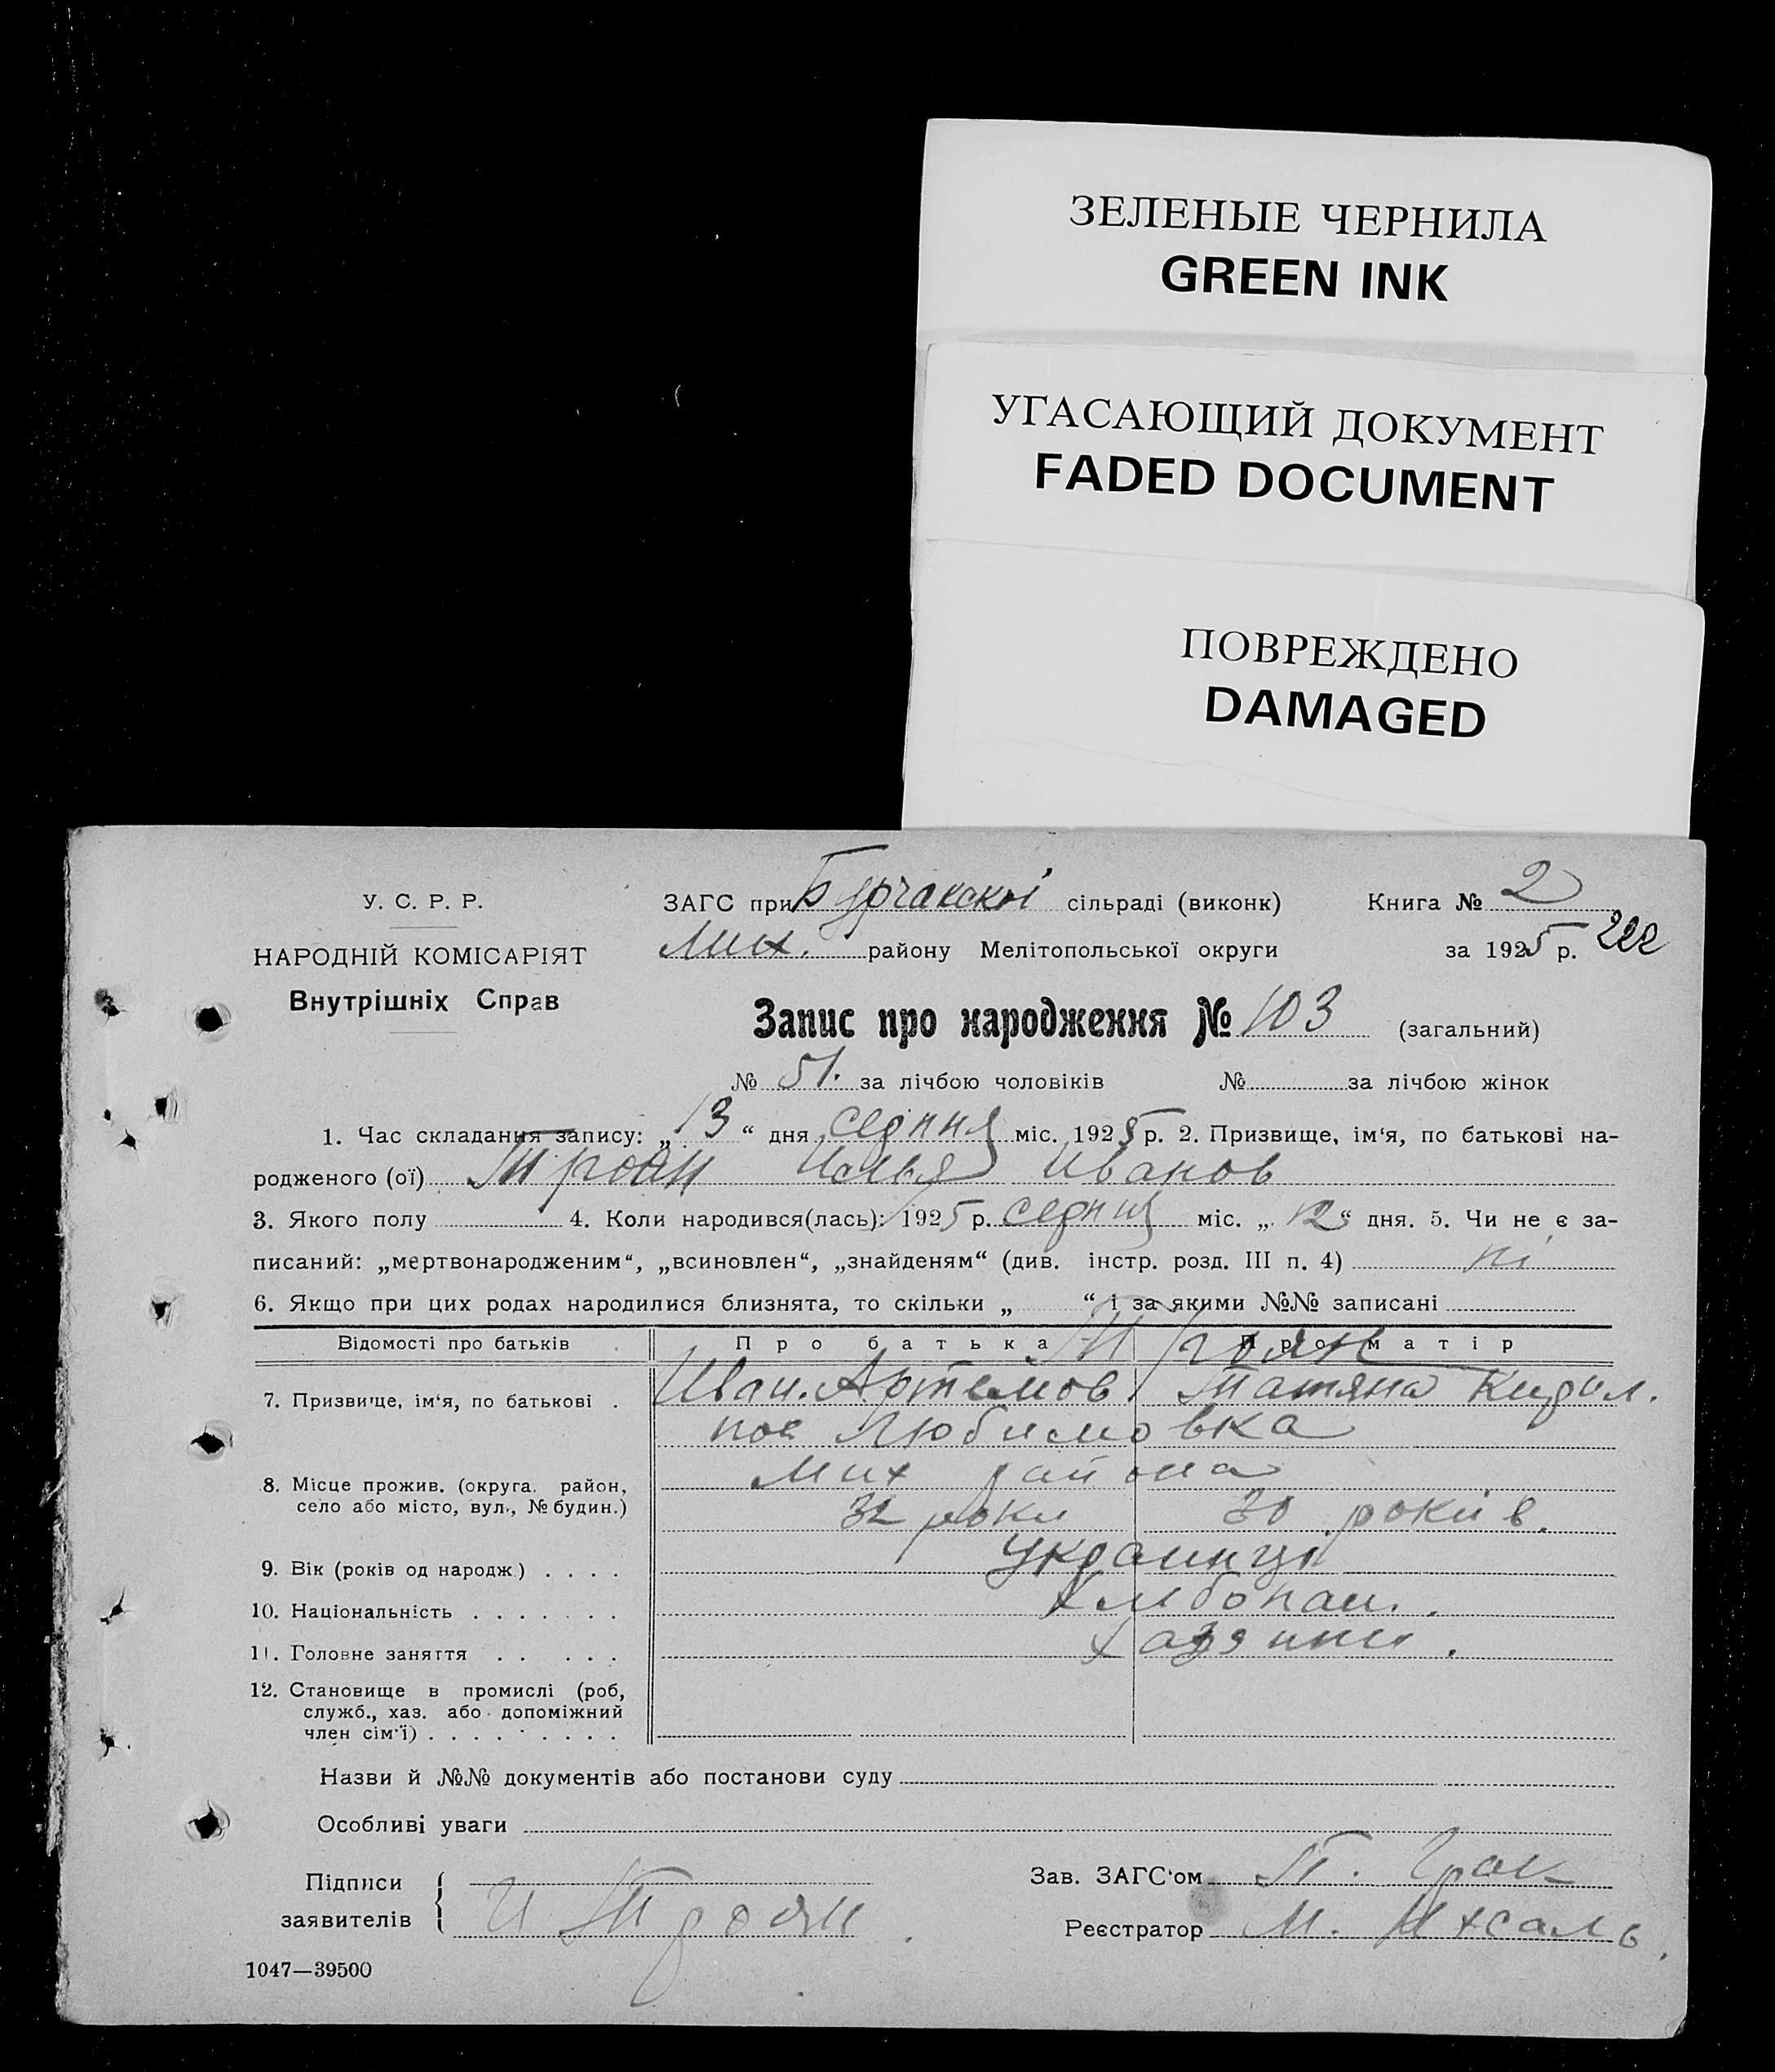 ЗЕЛЕНЫЕ ЧЕРНИЛА
GREEN INK
УГАСАЮЩИЙ ДОКУМЕНТ
FADED DOCUMENT
ПОВРЕЖДЕНО
DAMAGED
У. С. Р. Р.
НАРОДНІЙ КОМІСАРІЯТ
Внутрішніх Справ
ЗАГС при Бурчакскоі сільраді (виконк) Книга № 2
Мих. району Мелітопольської округи за 1925 р. 222
Запис про народження № 103 (загальний)
№ 51. за лічбою чоловіків № за лічбою жінок
1. Час складання запису: „13“ дня серпня міс. 1925 р. 2. Призвище, ім‘я, по батькові на-
родженого (ої) Троян Илья Иванов
3. Якого полу 4. Коли народився(лась): 1925 р. серпня міс. „12“ дня. 5. Чи не є за-
писаний: „мертвонародженим“, „всиновлен“, „знайденям“ (див. інстр. розд. III п. 4) ні
6. Якщо при цих родах народилися близнята, то скільки „ “ і за якими №№ записані
Відомості про батьків Про батька Про матір
Троян
7. Призвище, ім‘я, по батькові . Иван. Артемов. Татяна Кирил.
пос Любимовка
8. Місце прожив. (округа. район, село або місто, вул., № будин.) Мих района
32 роки 30 років.
9. Вік (років од народж.) . . . . Украинці
10. Національність . . . . . . . Хлібопаш.
11. Головне заняття . . . . . Хазяини.
12. Становище в промислі (роб,
служб., хаз. або допоміжний
член сім‘ї) . . . . . . . . .
Назви й №№ документів або постанови суду
Особливі уваги
Підписи
заявителів И Троян
Зав. ЗАГС‘ом
Реєстратор М.
1047—39500